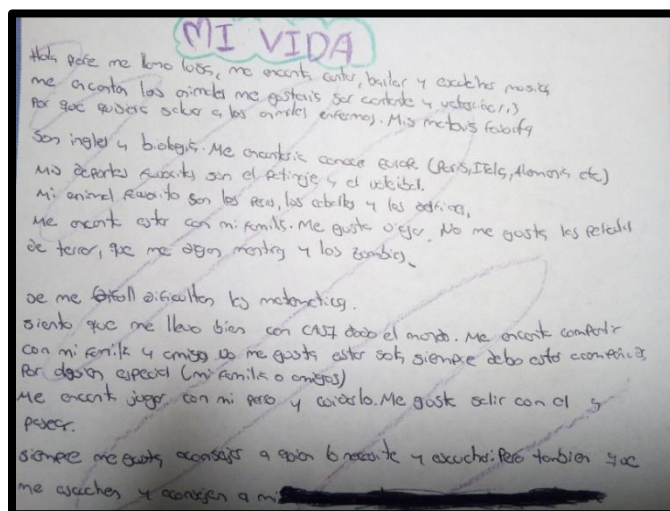 MI VIDA
Hola profe me llamo luisa, me encanta cantar, bailar y escuchar musica
me encantan los animales me gustaria ser cantante y veterinaria
Por que quisiera salvar a los animales enfermos. Mis materias favoritas
Son ingles y biologia. Me encantaria conocer europa (Paris, Italia, Alemania etc)
Mis deportes favoritos son el patinaje y el voleibol.
Mi animal favorito son los perros, los caballos y los delfines.
Me encanta estar con mi familia. Me gusta viajar. No me gusta las peliculas
de terror, que me digan mentiras y los zombies.
Se me dificultan las matematicas.
siento que me llevo bien con CASI todo el mundo. Me encanta compartir
con mi familia y amigos no me gusta estar sola siempre debo estar acompañada
Por alguien especial (mi familia o amigos)
Me encanta jugar con mi perro y cuidarlo. Me gusta salir con el a
pasear.
siempre me gusta aconsejar a quien lo necesite y escuchar. Pero tambien que
me escuchen y aconsejen a mi